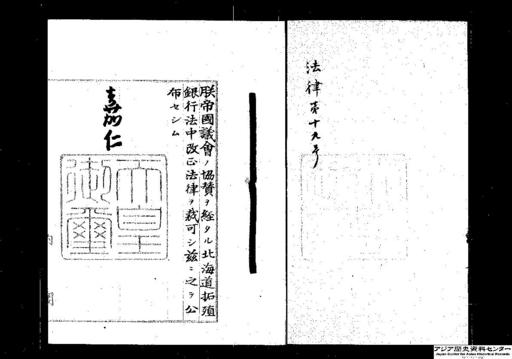 法律第十九号
朕帝國議會ノ協賛ヲ経タル北海道拓殖
銀行法中改正法律ヲ裁可シ茲ニ之ヲ公
布セシム
嘉仁
天皇
御璽
内閣
アジア歴史資料センター
Japan Center for Asian Historical Records